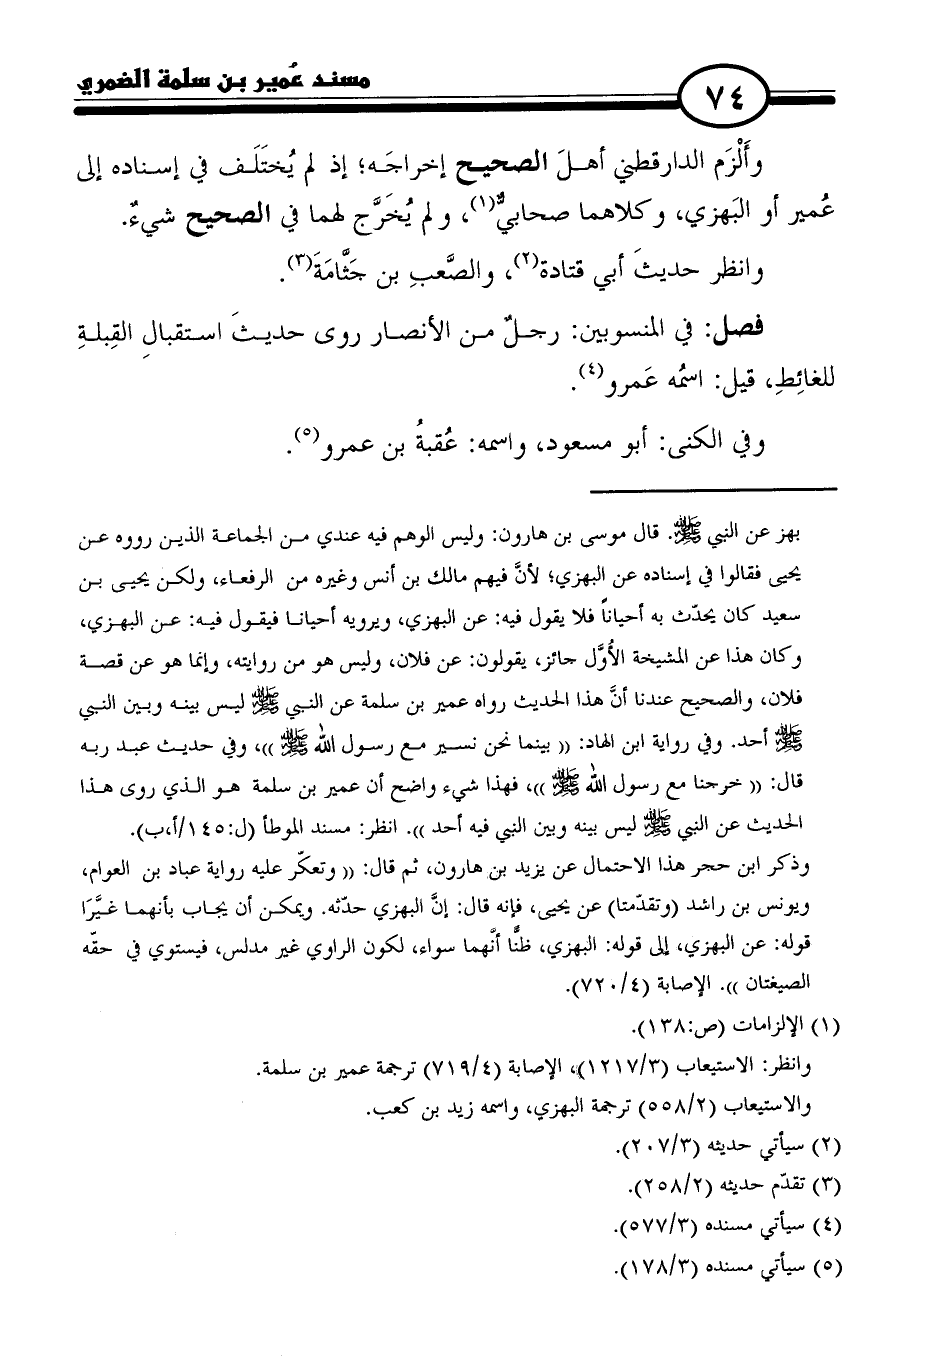 مسند عُمير بن سلمة الضمري
٧٤
وأَلْزَم الدارقطني أهلَ الصحيح إخراجَه؛ إذ لم يُختَلَف في إسناده إلى
عُمير أو البَهزي، وكلاهما صحابيٌّ(١)، ولم يُخَرَّج لهما في الصحيح شيءٌ.
وانظر حديثَ أبي قتادة(٢)، والصَّعبِ بن جَثَّامَةَ(٣).
فصل: في المنسوبين: رجلٌ من الأنصار روى حديثَ استقبالِ القِبلةِ
للغائِطِ، قيل: اسمُه عَمرو(٤).
وفي الكنى: أبو مسعود، واسمه: عُقبةُ بن عمرو(٥).
بهز عن النبي ﷺ. قال موسى بن هارون: وليس الوهم فيه عندي من الجماعة الذين رووه عن
يحيى فقالوا في إسناده عن البهزي؛ لأنَّ فيهم مالك بن أنس وغيره من الرفعاء، ولكن يحيى بن
سعيد كان يحدّث به أحياناً فلا يقول فيه: عن البهزي، ويرويه أحيانا فيقول فيه: عن البهزي،
وكان هذا عن المشيخة الأُوَّل حائز، يقولون: عن فلان، وليس هو من روايته، وإنما هو عن قصة
فلان، والصحيح عندنا أنَّ هذا الحديث رواه عمير بن سلمة عن النبي ﷺ ليس بينه وبين النبي
ﷺ أحد. وفي رواية ابن الهاد: (( بينما نحن نسير مع رسول الله ﷺ ))، وفي حديث عبد ربه
قال: (( خرجنا مع رسول الله ﷺ ))، فهذا شيء واضح أن عمير بن سلمة هو الذي روى هذا
الحديث عن النبي ﷺ ليس بينه وبين النبي فيه أحد )). انظر: مسند الموطأ (ل:١٤٥/أ،ب).
وذكر ابن حجر هذا الاحتمال عن يزيد بن هارون، ثم قال: (( وتعكّر عليه رواية عباد بن العوام،
ويونس بن راشد (وتقدّمتا) عن يحيى، فإنه قال: إنَّ البهزي حدّثه. ويمكن أن يجاب بأنهما غيَّرَا
قوله: عن البهزي، إلى قوله: البهزي، ظنًّا أنَّهما سواء، لكون الراوي غير مدلس، فيستوي في حقّه
الصيغتان )). الإصابة (٧٢٠/٤).
(١) الإلزامات (ص:١٣٨).
وانظر: الاستيعاب (١٢١٧/٣)، الإصابة (٧١٩/٤) ترجمة عمير بن سلمة.
والاستيعاب (٥٥٨/٢) ترجمة البهزي، واسمه زيد بن كعب.
(٢) سيأتي حديثه (٢٠٧/٣).
(٣) تقدّم حديثه (٢٥٨/٢).
(٤) سيأتي مسنده (٥٧٧/٣).
(٥) سيأتي مسنده (١٧٨/٣).